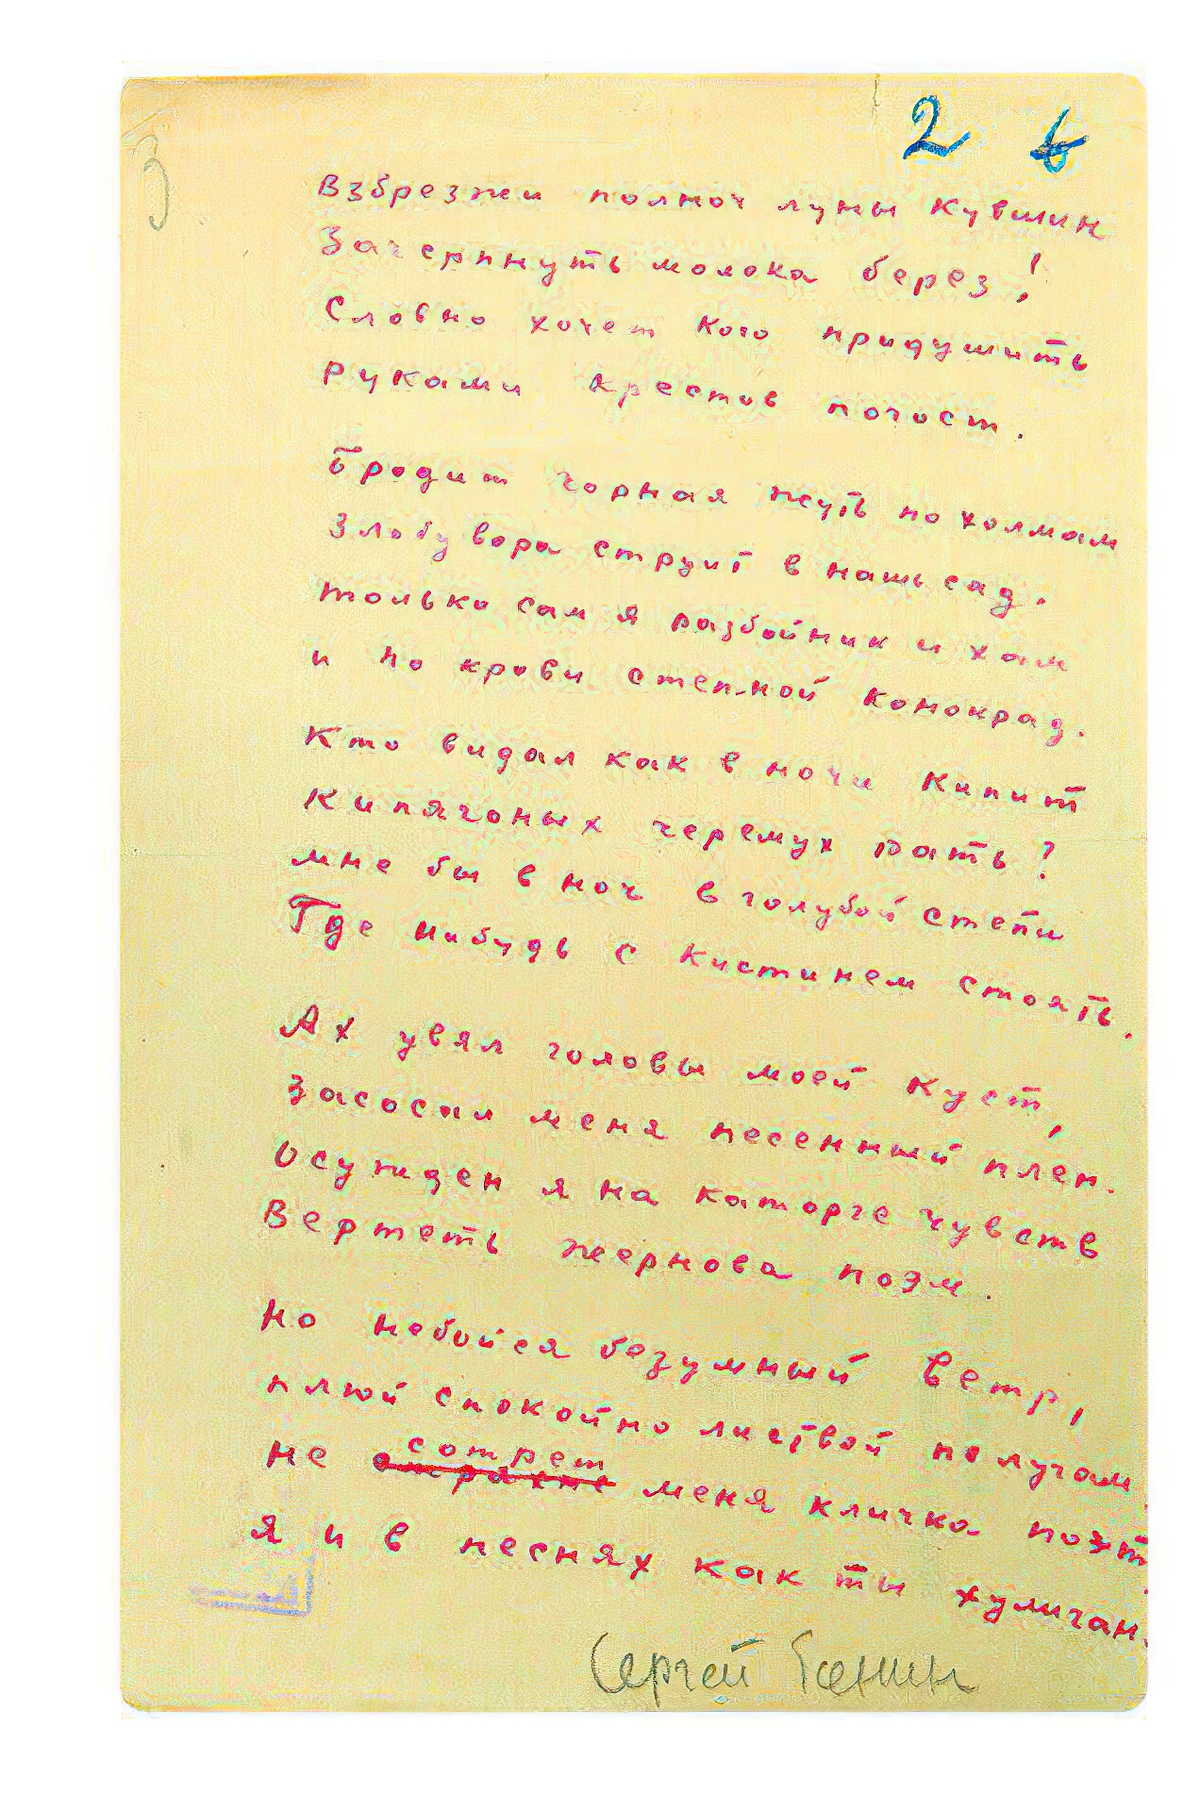 2 6
3
Взбрезжи полноч луны кувшин
Зачерпнуть молока берез!
Словно хочет кого придушить
руками крестов погост.
Бродит чорная жуть по холмам
Злобу вора струит в наш сад.
только сам я разбойник и хам
и по крови степной конокрад.
Кто видал как в ночи кипит
Кипячоных черемух рать?
мне бы в ноч в голубой степи
Где нибудь с кистинем стоять.
Ах увял головы моей куст,
Засосал меня песенный плен.
Осужден я на каторге чувств
Вертеть жернова поэм.
Но небойся безумный ветр,
плюй спокойно листвой по лугам
сотрет
не меня кличка поэт
Я и в песнях как ты хулиган.
Сергей Есенин